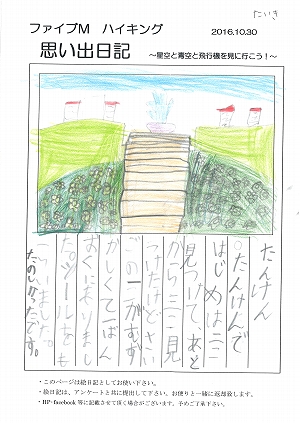 たいき
ファイブM ハイキング 2016.10.30
思い出日記 ～星空と青空と飛行機を見に行こう！～
たんけん
。たんけんで
はじめは二こ
見つけて、あと
から三こ見
つけたけどさい
ごの一こがむず
かしくて
になりまし
た。シールをも
らいました。
たのしかったです。
・このページは絵日記としてお使い下さい。
・絵日記は、アンケートと共に提出して下さい。お便りと一緒に返却致します。
・HP・facebook 等に記載させて頂く場合がございます。予めご了承下さい。